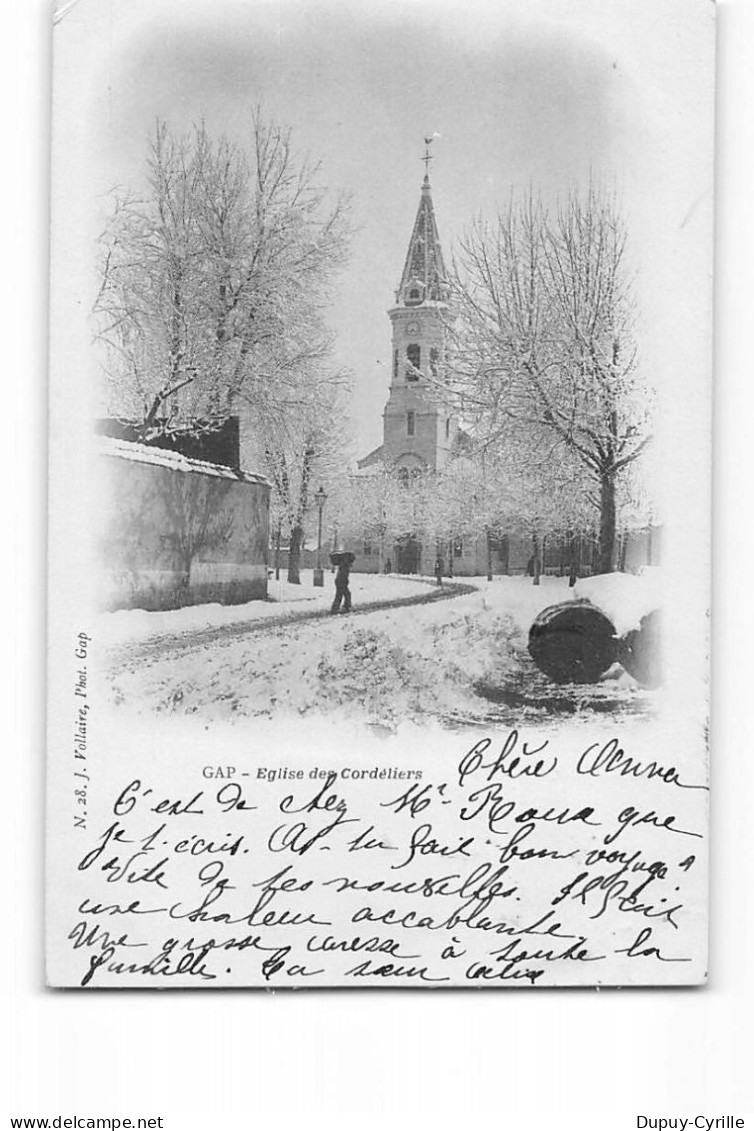 N. 28. J. Vollaire, Phot. Gap
GAP - Eglise des Cordéliers
Chère Anna
C'est de chez Mr Roux que
je t'écris. As-tu fait bon voyage?
Vite de tes nouvelles. Il fait
une chaleur accablante.
Une grosse caresse à toute la
famille. Ta sœur
Dupuy-Cyrille